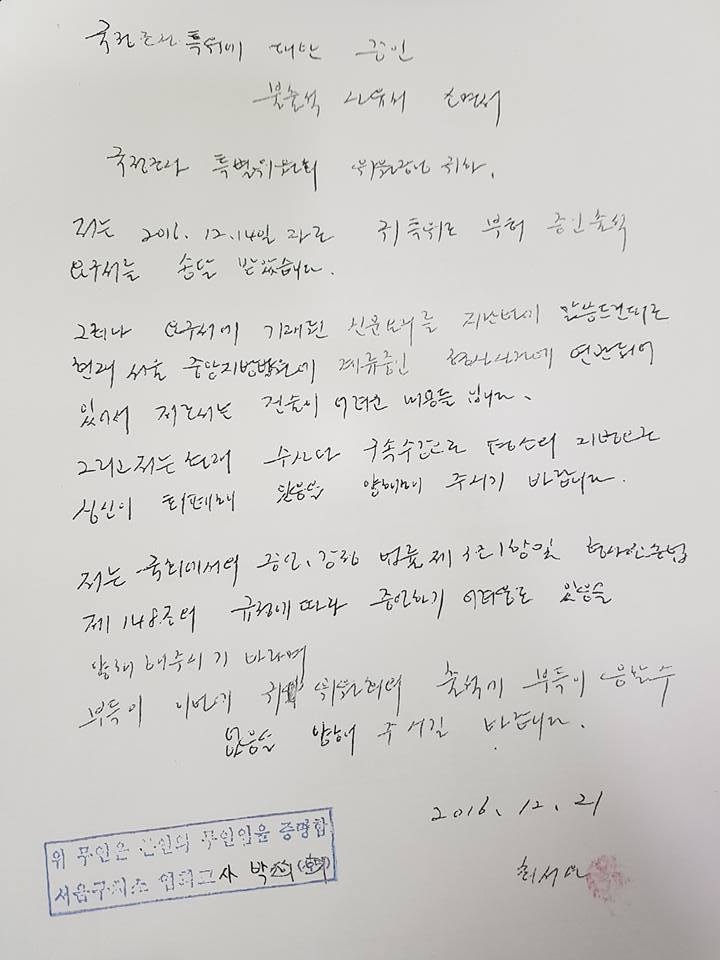 국정조사 특위에 대한 증인
불출석 사유서 소명서
국정조사 특별위원회 위원장님 귀하.
저는 2016. 12.14일 귀 특위로 부터 증인출석
요구서를 송달 받았습니다.
그러나 요구서에 기재된 신문요지를
현재 서울 중앙지방법원에 계류중인 형사사건에 연관되어
있어서 저로서는 진술이 어려운 내용들 입니다.
그리고 저는 현재 수사와 구속수감으로 평소의 지병으로
심신이 회폐해 있음을 양해해 주시기 바랍니다.
저는 국회에서의 증언, 감정 법률 제3조1항 및 형사소송법
제148조의 규정에 따라 증언하기 어려움도 있음을
양해 해주시기 바라며
부득이 이번에 귀 위원회의 출석기 부득이 응할수
없음을 양해 주시길 바랍니다.
2016. 12. 21
최서원
위 무인은 본인의 무인임을 증명함
서울구치소 사 박